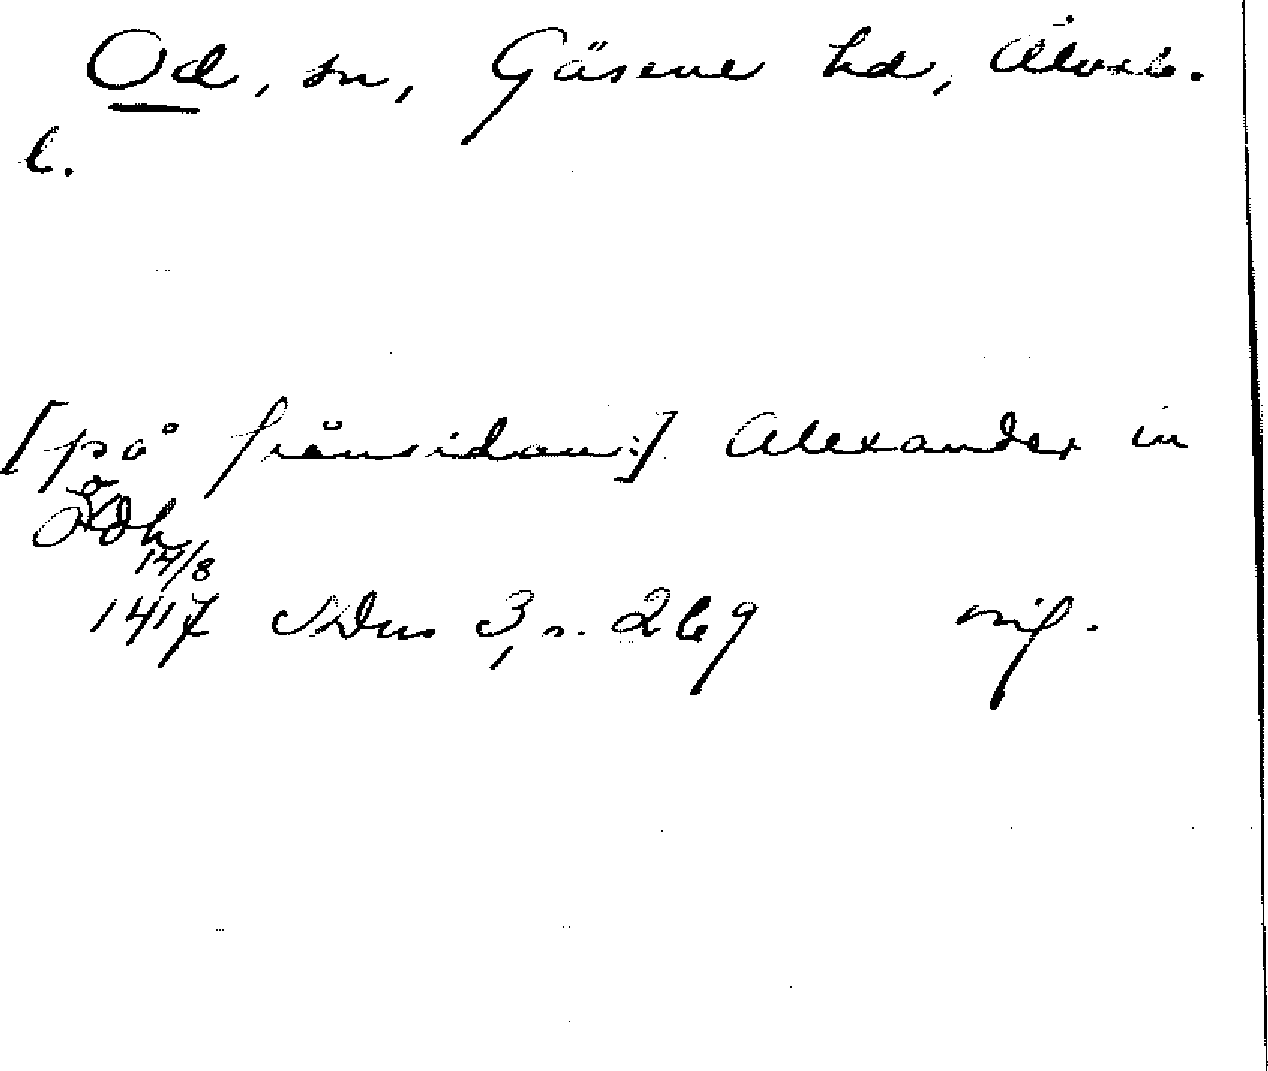 Od, sn, Gäsene hd, Älvsb.
l.
[på frånsidan:] Alexander in
14/8
1417 SDns 3, s. 269 orig.